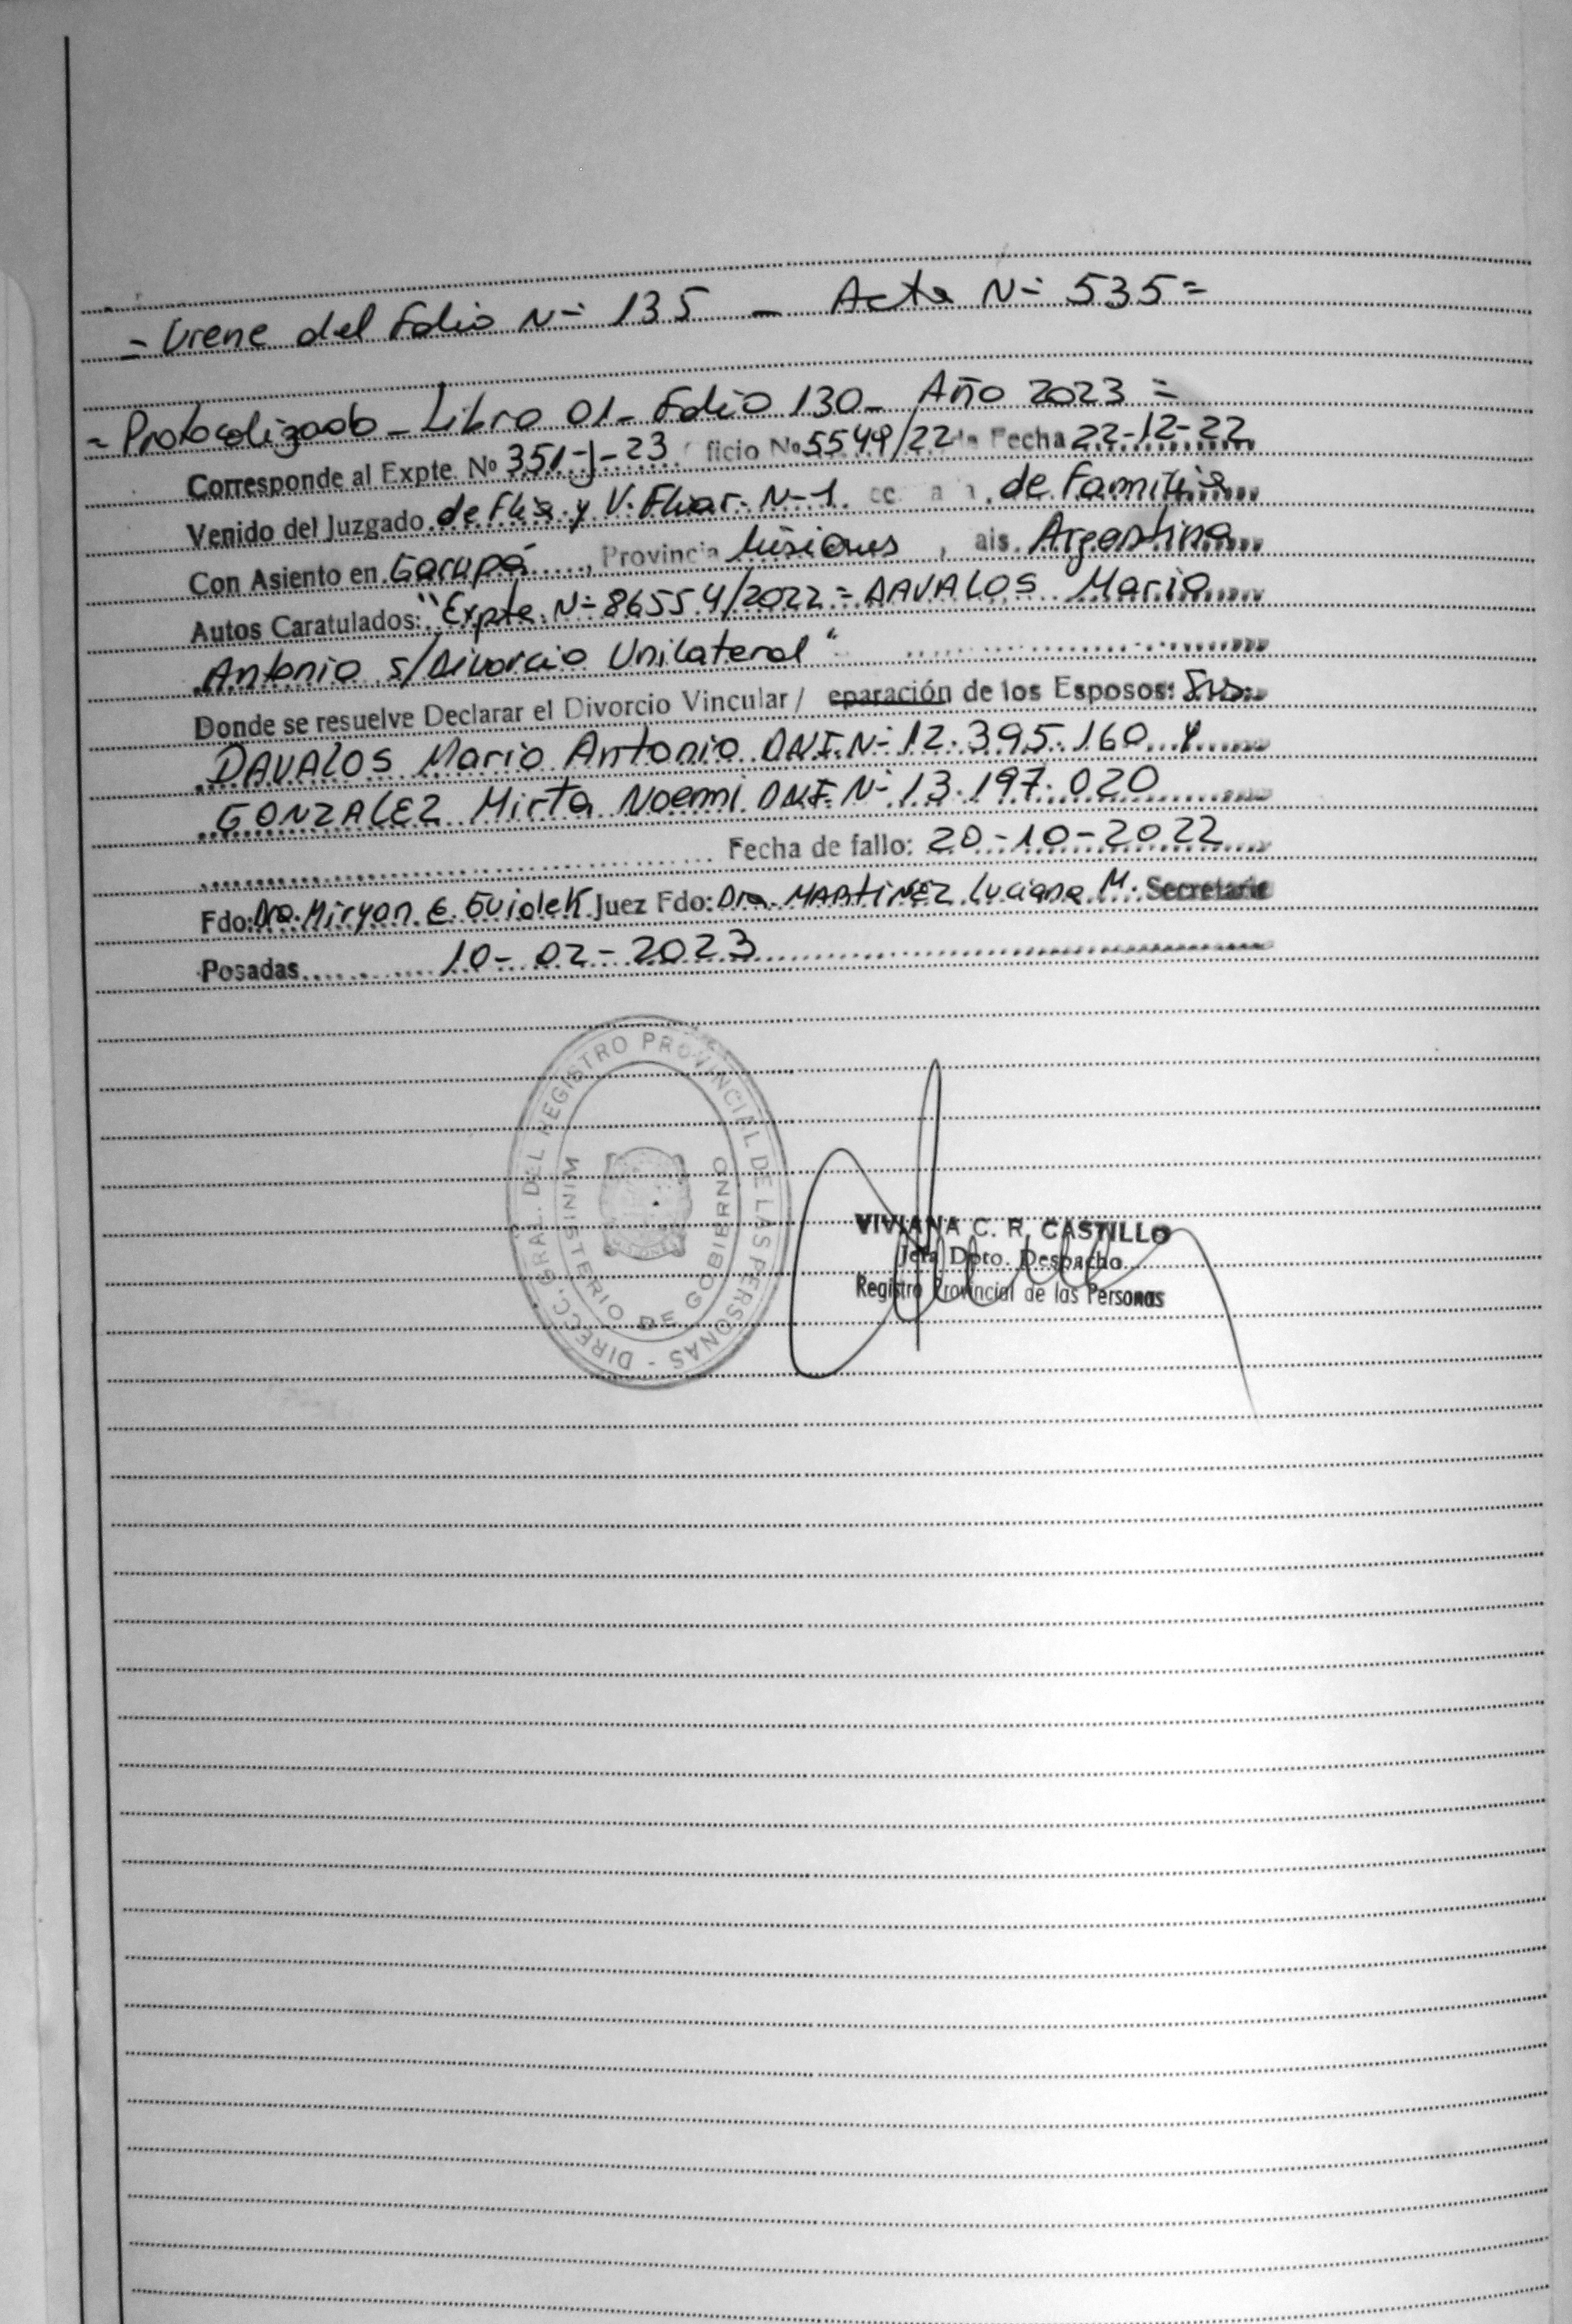 = Viene del Folio N= 135 - Acta N= 535=
= Protocolizado - Libro 01 - Folio 130 - Año 2023 =
Corresponde al Expte. No 351-J-23 ficio No 5549/22 Fecha 22-12-22
Venido del Juzgado de Flia y V. Fliar. N-1. de Familia
Con Asiento en Garupá, Provincia Misiones, ais. Argentina
Autos Caratulados: "Expte. N= 86554/2022= DAVALOS Mario
Antonio s/Divorcio Unilateral"
Donde se resuelve Declarar el Divorcio Vincular / eparación de los Esposos: Srs:
DAVALOS Mario Antonio DNI. N= 12.395.160 y
GONZALEZ Mirta Noemi DNI. N= 13.197.020
Fecha de fallo: 20-10-2022
Fdo: Dra. Miryan E. Juez Fdo: Dra. MARTINEZ Luciana M. Secretaria
Posadas 10-02-2023
DIRECC. GRAL. DEL REGISTRO PROVINCIAL DE LAS PERSONAS -
MINISTERIO DE GOBIERNO
MISIONES
VIVIANA C. R. CASTILLO
Jefa Dpto. Despacho
Registro Provincial de las Personas